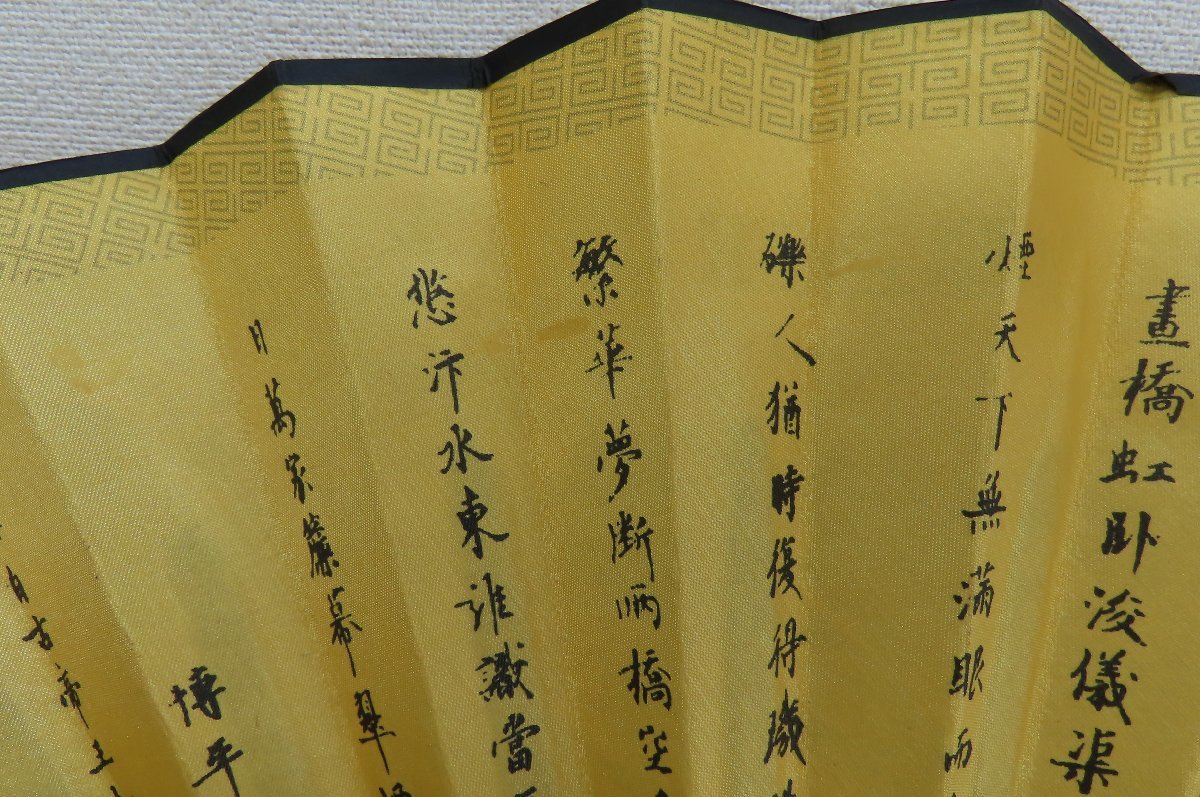 畫橋虹卧浚儀渠
煙天下無滿眼而
礫人猶時復得璣
繁華夢斷兩橋空
悠汴水東誰識當
日萬家簾幕翠
博平
自古帝王